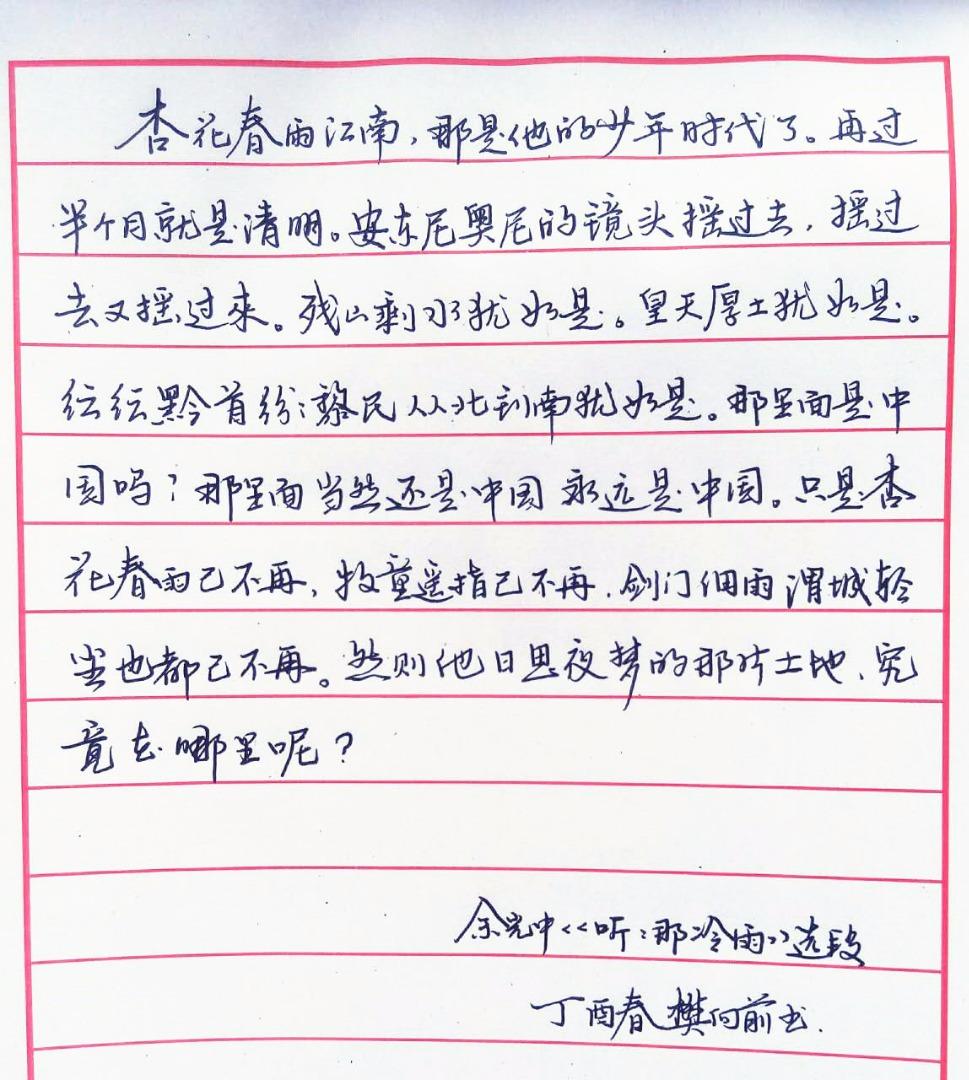 杏花春雨江南,那是他的少年时代了。再过
半个月就是清明。安东尼奥尼的镜头摇过去,摇过
去又摇过来。残山剩水犹如是。皇天厚土犹如是。
纭纭黔首纷纷黎民从北到南犹如是。那里面是中
国吗?那里面当然还是中国永远是中国。只是杏
花春雨已不再,牧童遥指已不再,剑门细雨渭城轻
尘也都已不再。然则他日思夜梦的那片土地,究
竟在哪里呢?
余光中《听听那冷雨》选段
丁酉春樊向前书.